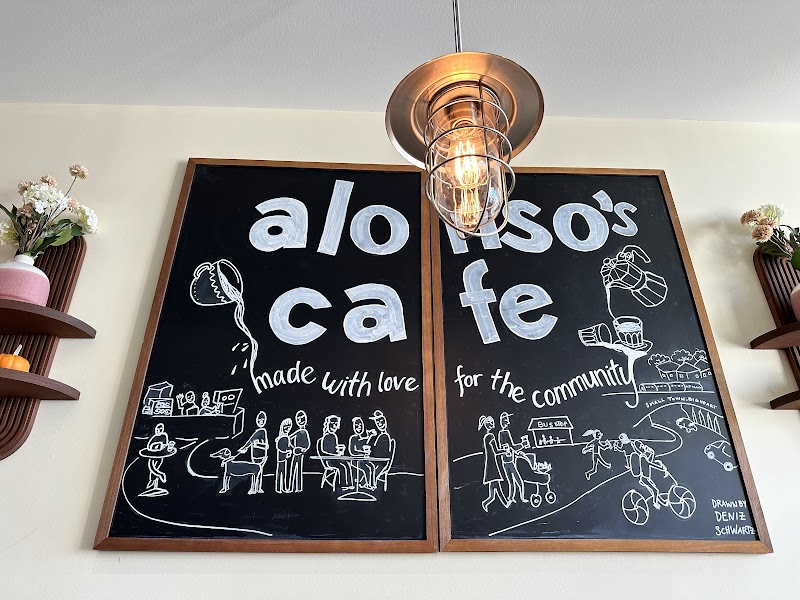 alonso's
cafe
made with love for the community
BUS STOP
SMALL TOWN, BIG HEART
DRAWN BY
DENIZ
SCHWARTZ